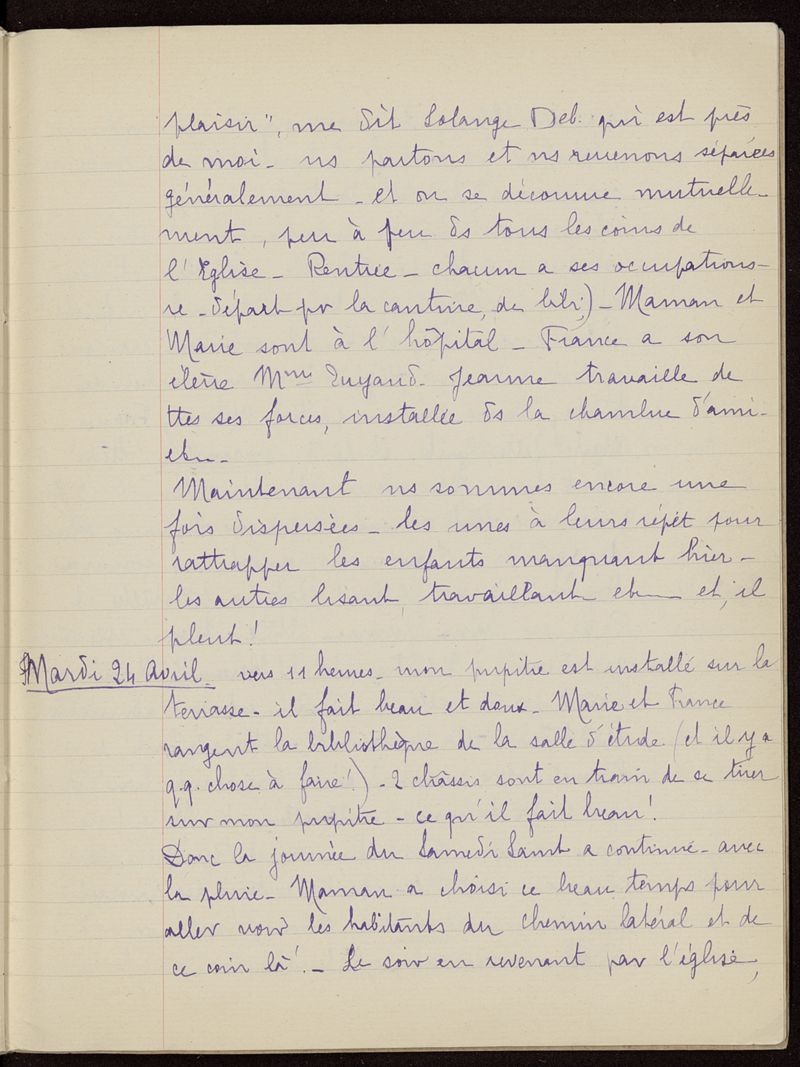 plaisir", me dit Solange Deb. qui est près
de moi - ns partons et ns revenons séparées
généralement - et on se découvre mutuelle-
ment, peu à peu ds tous les coins de
l'Eglise - Rentrée - chacun a ses occupations -
re-départ pr la cantine, de bibl;) - Maman et
Marie sont à l'hôpital - France a son
élève Mme - Jeanne travaille de
ttes ses forces, installée ds la chambre d'ami -
etc -
Maintenant ns sommes encore une
fois dispersées - les unes à leurs répét pour
rattrapper les enfants manquant hier -
les autres lisant, travaillant etc et, il
pleut!
Mardi 24 Avril. vers 11 heures - mon pupitre est installé sur la
terrasse - il fait beau et doux - Marie et France
rangent la bibliothèque de la salle d'étude (et il y a
q.q. chose à faire!) - 2 châssis sont en train de se tirer
sur mon pupitre - ce qu'il fait beau!
Donc la journée du Samedi Saint a continué - avec
la pluie - Maman a choisi ce beau temps pour
aller voir les habitants du chemin latéral et de
ce coin là! - Le soir en revenant par l'église,